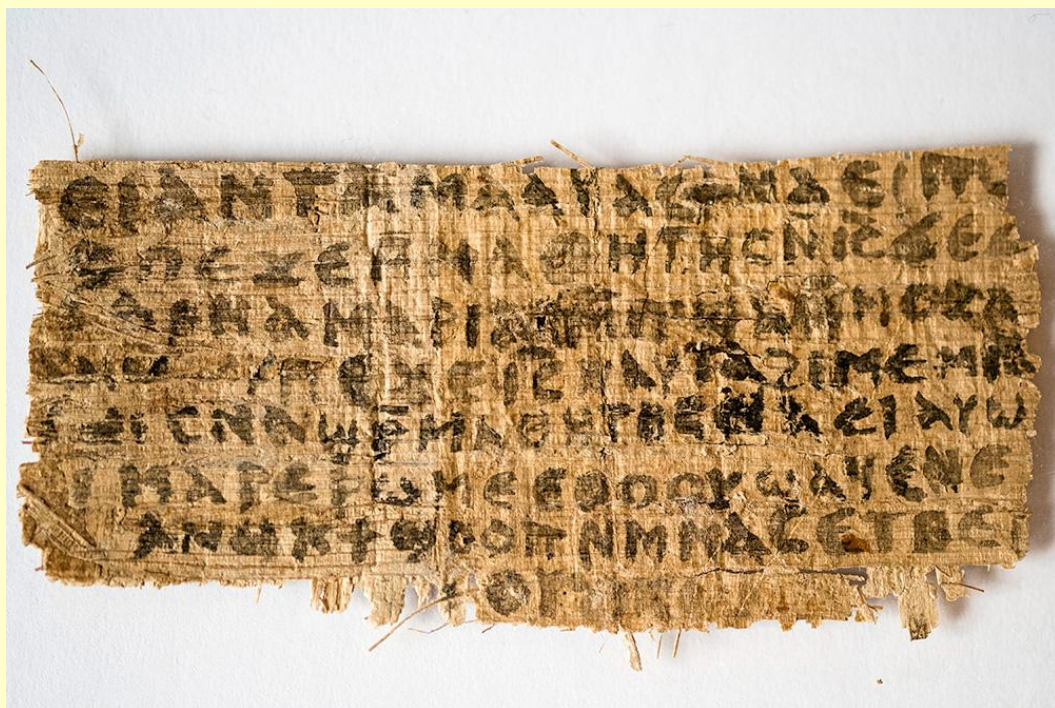 ⲉⲓⲁⲛⲧⲁⲙⲁⲁⲩⲁⲥϯⲛⲁⲉⲓⲡ
ⲡⲉϫⲉⲙⲙⲁⲑⲏⲧⲏⲥⲛ̄ⲓ̄ⲥ̄ϫⲉⲥ
ⲁⲣⲛⲁⲙⲁⲣⲓⲁⲙⲙ̄ⲡϣⲁⲙ̄ⲙⲟⲥⲁ
ⲡⲉϫⲉⲓ̄ⲥ̄ⲛⲁⲩⲧⲁϩⲓⲙⲉⲙⲛ̄
ⲥⲛⲁϣⲣ̄ⲙⲁⲑⲏⲧⲏⲥⲛⲁⲉⲓⲁⲩⲱ
ⲓⲙⲁⲣⲉⲣⲱⲙⲉⲉⲑⲟⲟⲩϣⲁϥⲉⲛⲉ
ⲁⲛⲟⲕϯϣⲟⲟⲡⲛⲙ̄ⲙⲁⲥⲉⲧⲃⲉ